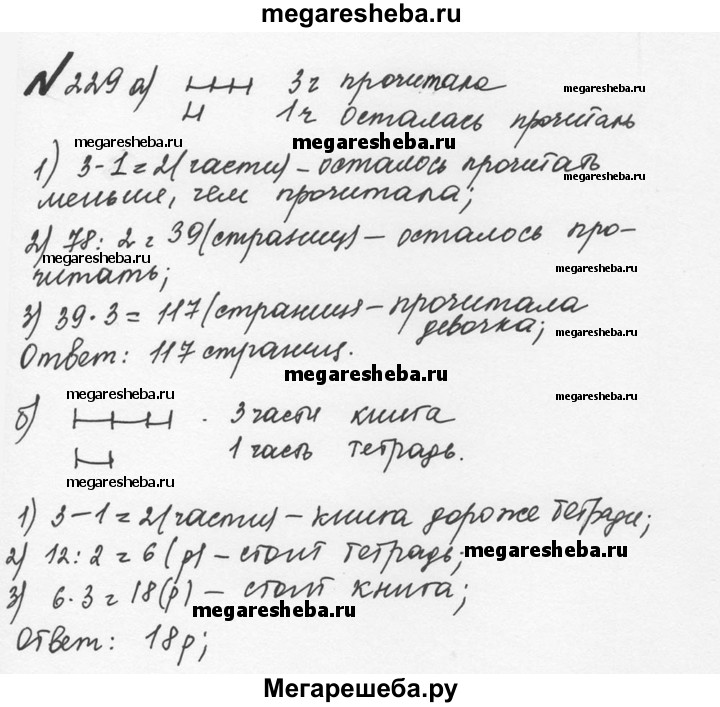 megaresheba.ru
№229 а) 3ч прочитала
megaresheba.ru
1ч осталась прочитать
megaresheba.ru megaresheba.ru
1) 3-1=2(части) – осталось прочитать
megaresheba.ru
меньше, чем прочитала;
2) 78:2=39(страниц) – осталось про-
megaresheba.ru megaresheba.ru
читать;
3) 39·3=117(страниц) – прочитала
девочка;
megaresheba.ru
Ответ: 117 страниц.
megaresheba.ru
megaresheba.ru megaresheba.ru
б) . 3 части книга
1 часть тетрадь.
megaresheba.ru
1) 3-1=2(части) – книга дороже тетради;
2) 12:2=6(р) – стоит тетрадь;
megaresheba.ru
3) 6·3=18(р) – стоит книга;
megaresheba.ru
Ответ: 18р;
Мегарешеба.ру